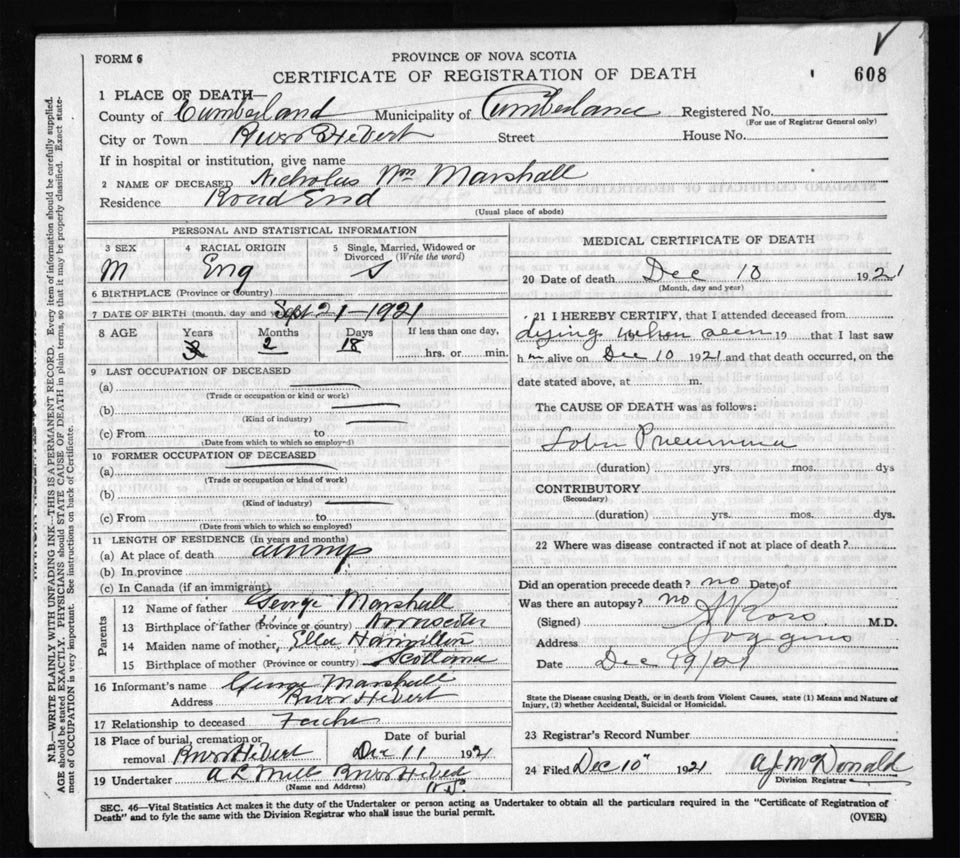 FORM 6
PROVINCE OF NOVA SCOTIA
CERTIFICATE OF REGISTRATION OF DEATH
608
1 PLACE OF DEATH—
County of Cumberland Municipality of Cumberland Registered No.
(For use of Registrar General only)
City or Town River Hebert Street House No.
If in hospital or institution, give name
2 NAME OF DECEASED Nicholas Wm Marshall
Residence Road End
(Usual place of abode)
PERSONAL AND STATISTICAL INFORMATION
3 SEX 4 RACIAL ORIGIN 5 Single, Married, Widowed or Divorced (Write the word)
M Eng S
6 BIRTHPLACE (Province or Country)
7 DATE OF BIRTH (month, day and Sept 21-1921
8 AGE Years Months Days If less than one day,
2 18 hrs. or min.
9 LAST OCCUPATION OF DECEASED
(a)
(Trade or occupation or kind or work)
(b)
(Kind of industry)
(c) From to
(Date from which to which so employed)
10 FORMER OCCUPATION OF DECEASED
(a)
(Trade or occupation or kind of work)
(b)
(Kind of industry)
(c) From to
(Date from which to which so employed)
11 LENGTH OF RESIDENCE (In years and months)
(a) At place of death always
(b) In province
(c) In Canada (if an immigrant)
Parents
12 Name of father George Marshall
13 Birthplace of father (Province or country)
14 Maiden name of mother, Ella Hamilton
15 Birthplace of mother (Province or country) Scotland
16 Informant's name George Marshall
Address River Hebert
17 Relationship to deceased Father
18 Place of burial, cremation or removal River Hebert Date of burial Dec 11 1921
19 Undertaker River Hebert
(Name and Address) N.S.
MEDICAL CERTIFICATE OF DEATH
20 Date of death Dec 10 1921
(Month, day and year)
21 I HEREBY CERTIFY, that I attended deceased from
dying when seen 19 that I last saw
h m alive on Dec 10 1921 and that death occurred, on the
date stated above, at m.
The CAUSE OF DEATH was as follows:
Lobar Pneumonia
(duration) yrs. mos. dys
CONTRIBUTORY
(Secondary)
(duration) yrs. mos. dys.
22 Where was disease contracted if not at place of death?
Did an operation precede death? no Date of
Was there an autopsy? no
(Signed) Ross M.D.
Address Joggins
Date Dec 19/21
State the Disease causing Death, or in death from Violent Causes, state (1) Means and Nature of
Injury, (2) whether Accidental, Suicidal or Homicidal.
23 Registrar's Record Number
24 Filed Dec 10" 1921 A.J. McDonald
Division Registrar
SEC. 46—Vital Statistics Act makes it the duty of the Undertaker or person acting as Undertaker to obtain all the particulars required in the "Certificate of Registration of
Death" and to fyle the same with the Division Registrar who shall issue the burial permit.
(OVER)
N.B.—WRITE PLAINLY WITH UNFADING INK—THIS IS A PERMANENT RECORD. Every item of information should be carefully supplied.
AGE should be stated EXACTLY. PHYSICIANS should STATE CAUSE OF DEATH in plain terms, so that it may be properly classified. Exact state-
ment of OCCUPATION is very important. See instructions on back of Certificate.